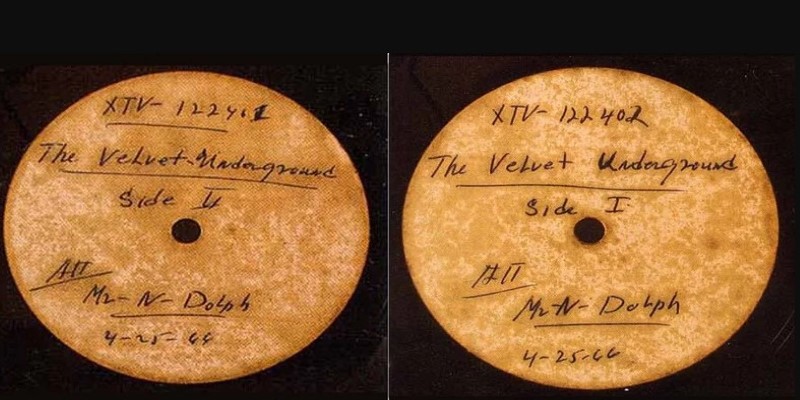 XTV- 122401
The Velvet-Underground
Side II
Att
Mr-N-Dolph
4-25-66
XTV- 122402
The Velvet Underground
Side I
Att
Mr-N- Dolph
4-25-66